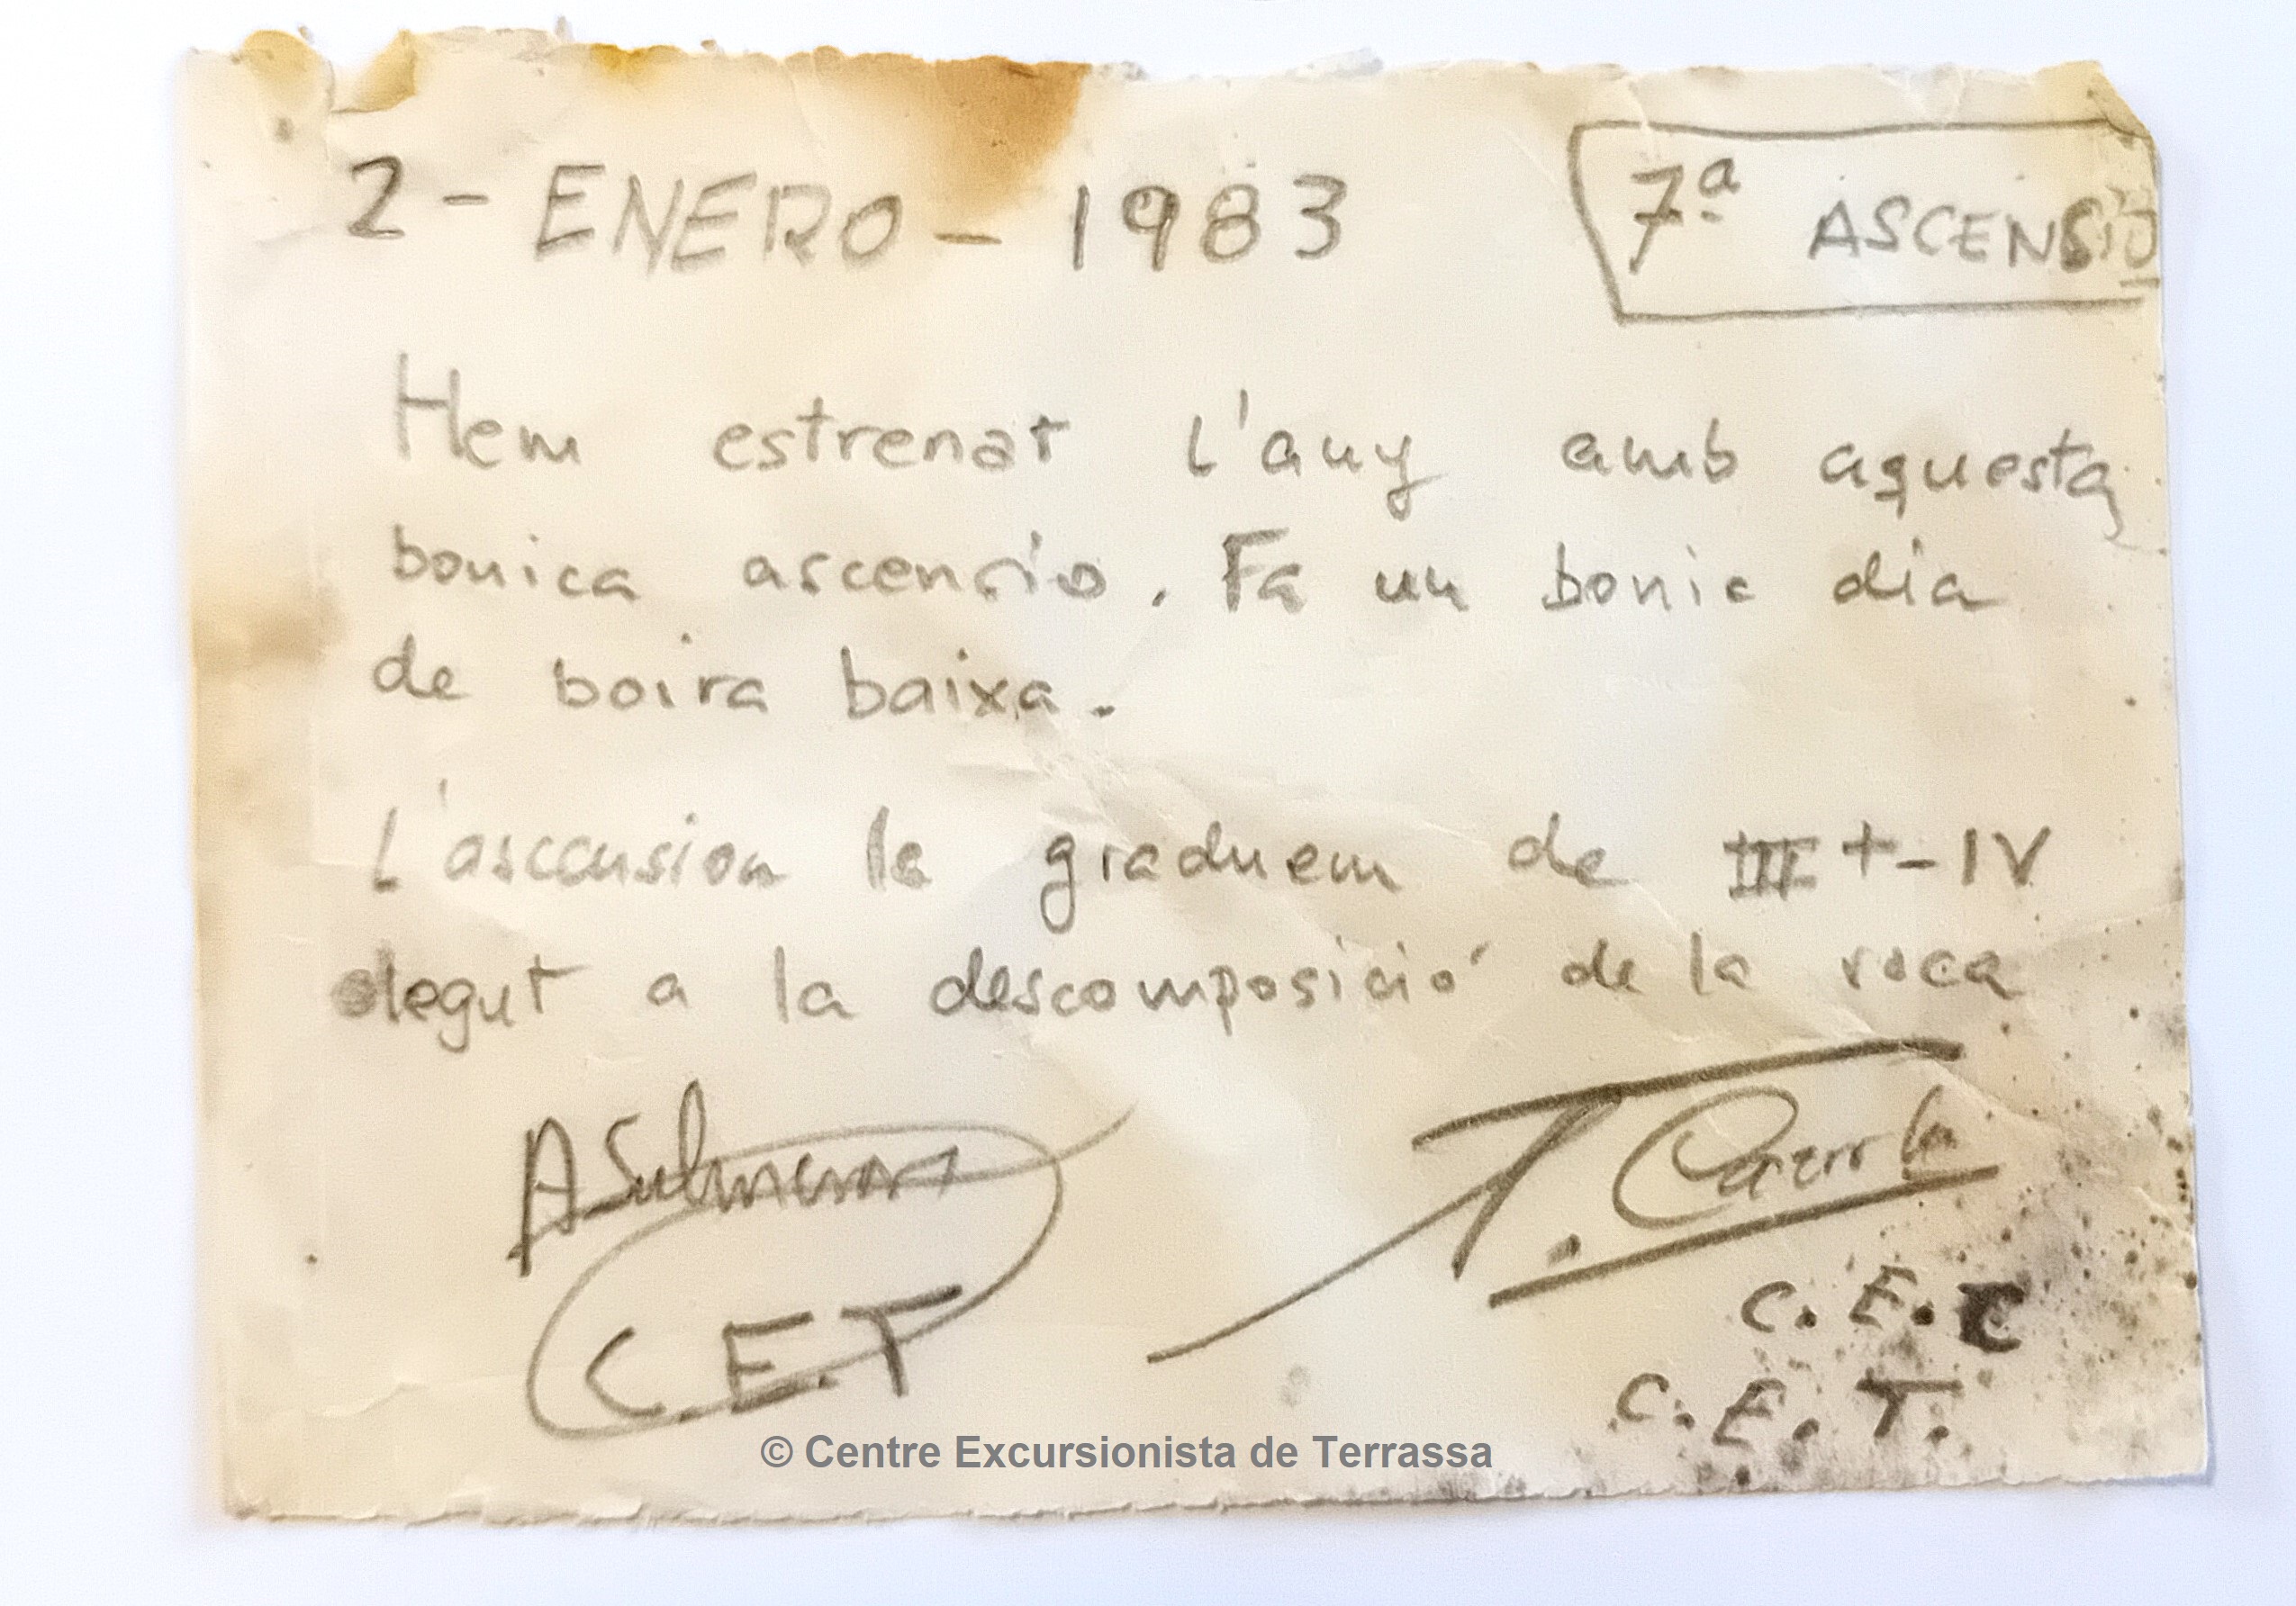 2 - ENERO - 1983
7ª ASCENSIÓ
Hem estrenat l'any amb aquesta
bonica ascensio. Fa un bonic dia
de boira baixa.
L'ascension la graduem de III+-IV
degut a la descomposició de la roca
A
T.
C.E.T
C.E.C
C.E.T.
© Centre Excursionista de Terrassa